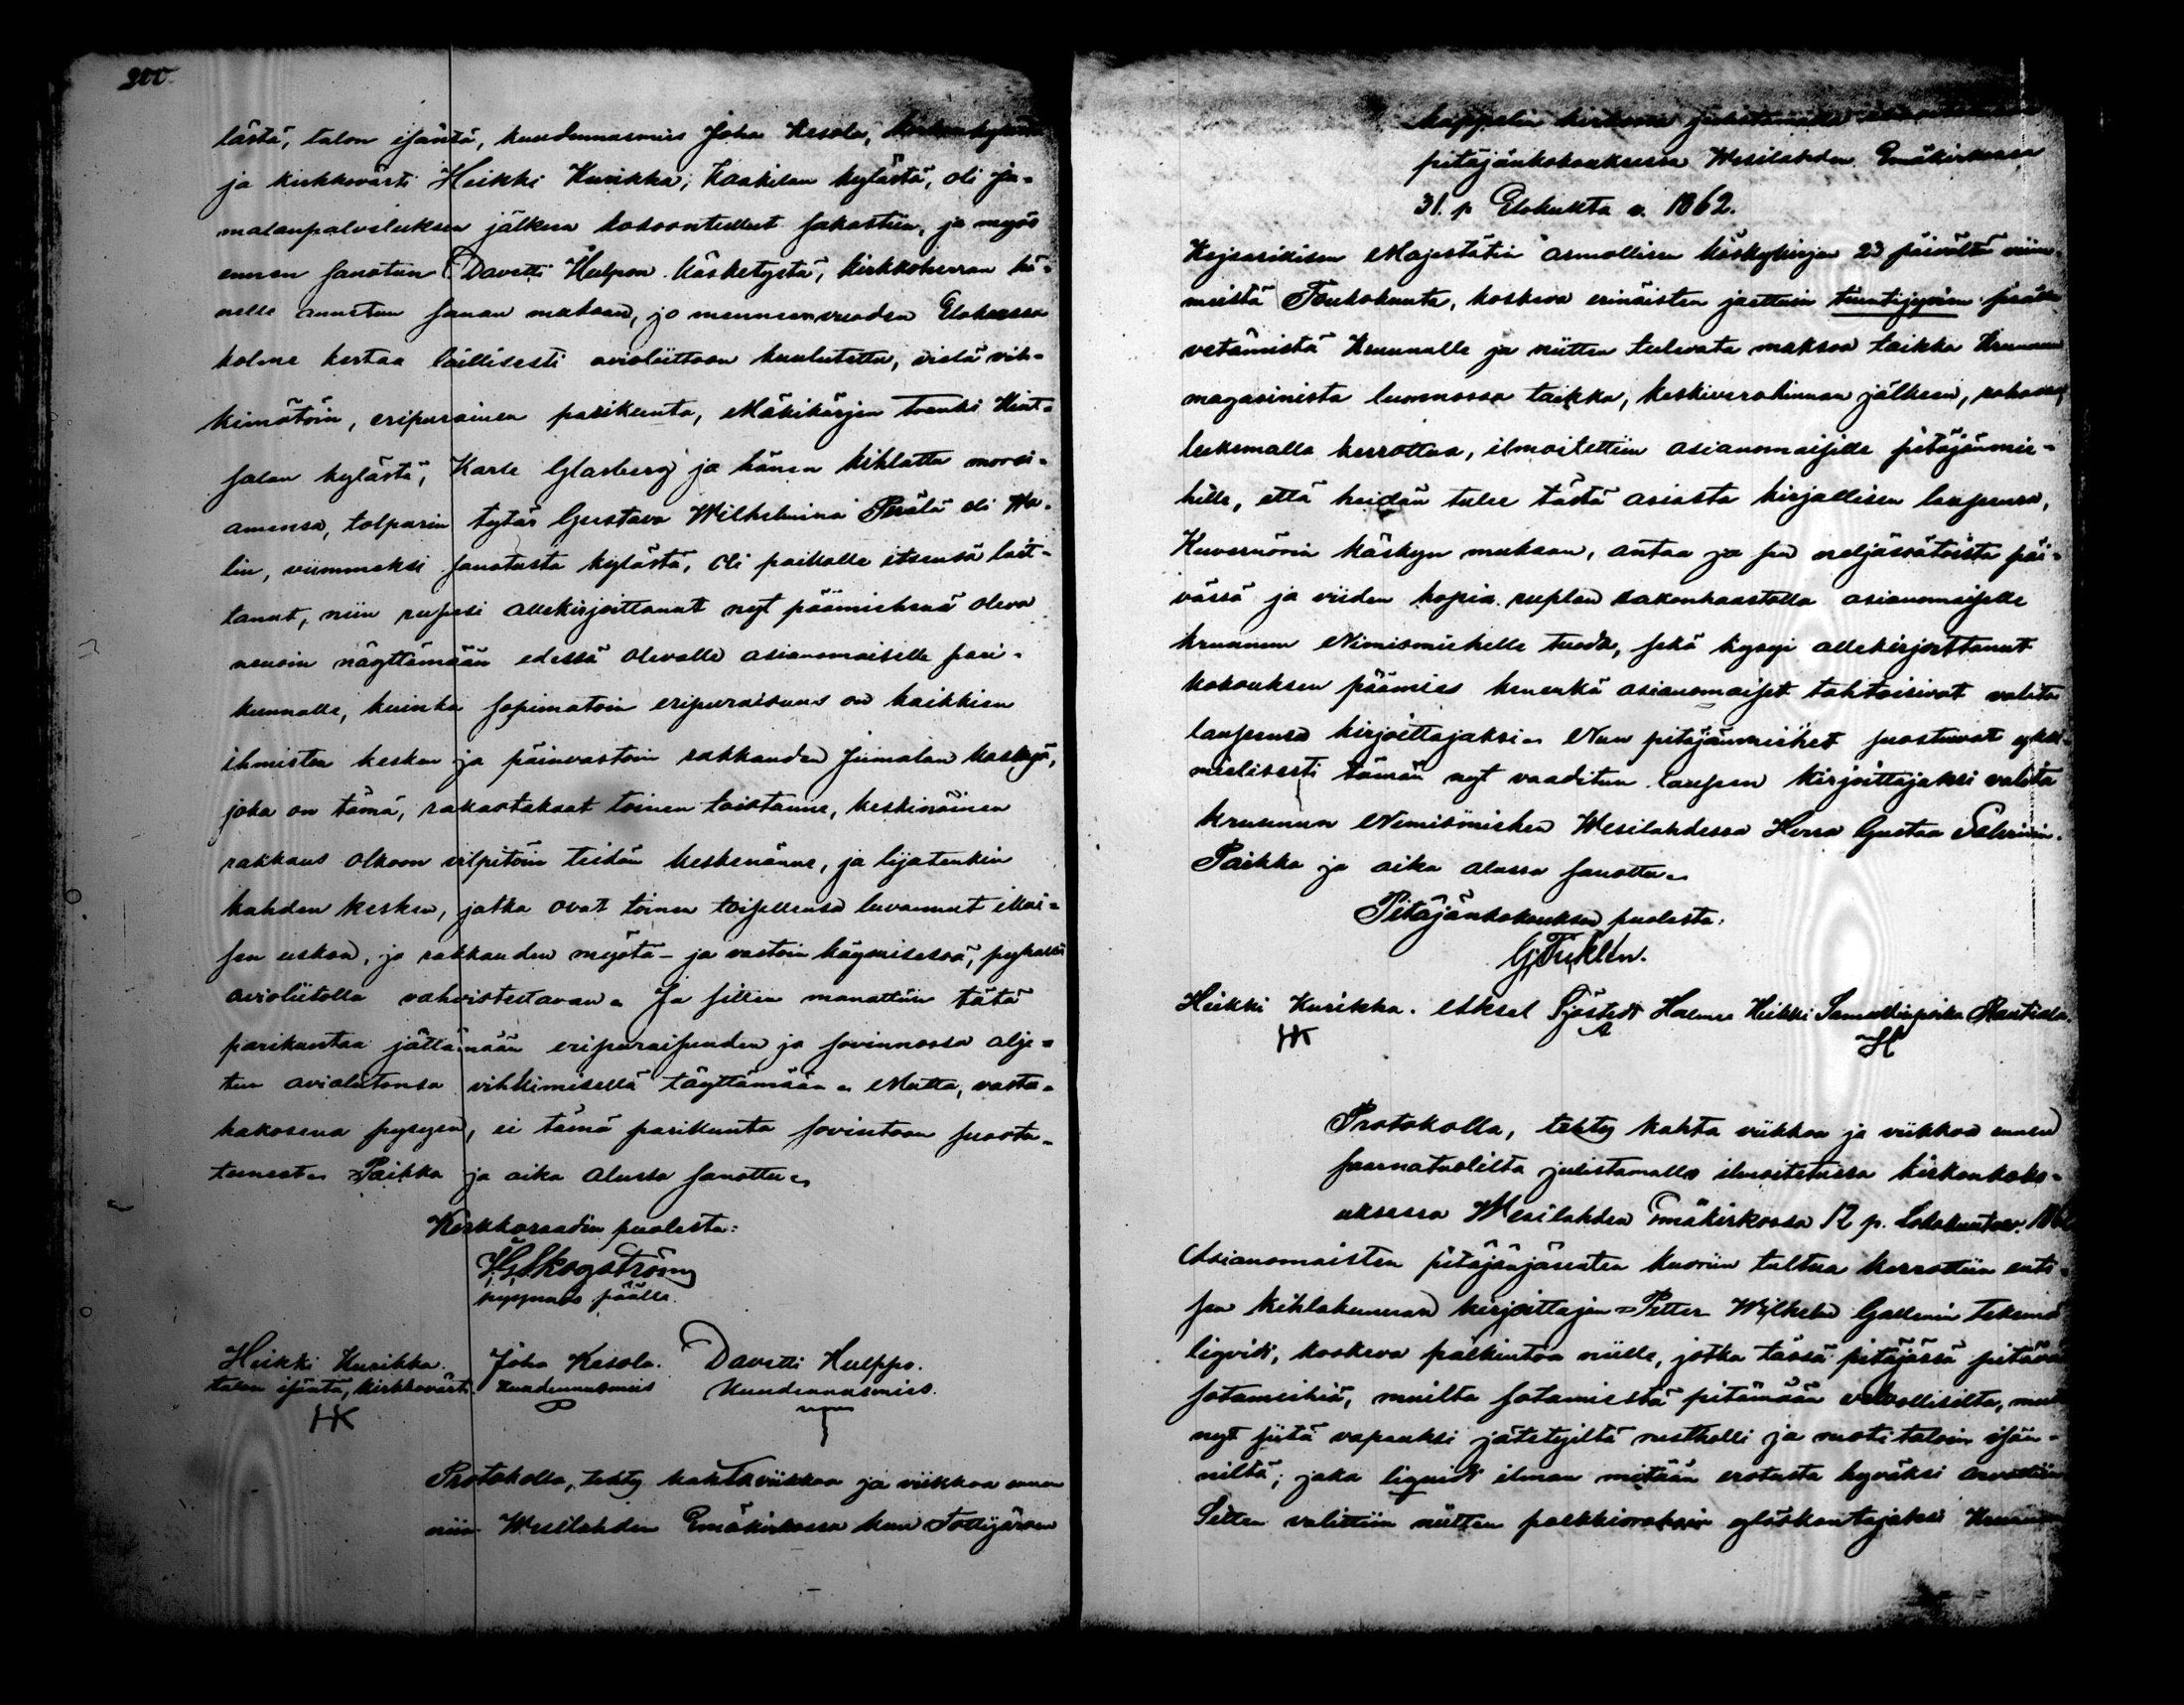 200
lästä, talon isäntä, kuudennusmies Joha Kesola, Kirkonkylästä
ja kirkkovärti Heikki Kurikka, Kaakilan kylästä, oli Ju-
malanpalveluksen jälkeen kokoontullut sakastiin, ja myös
ennen sanotun Davetti Hulpon käsketystä, kirkkoherran hä-
nelle annetun sanan mukaan, jo menneen vuoden Elokuussa
kolme kertaa laillisesti avioliittoon kuulutettu, vielä vih-
kimätöin, eripurainen parikunta, Mäkikärjen trenki
salon kylästä, Karle Glasberg ja hänen kihlattu morsi-
amensa, torparin tytär Gustava Wilhelmina Perälä eli Wa-
lin, viimmeksi sanotusta kylästä, oli paikalle itsensä lait-
tanut, niin rupesi allekirjoittanut nyt päämiehenä oleva
neuvoin näyttämään edessä olevalle asianomaiselle pari-
kunnalle, kuinka sopimatoin eripuraisuus on kaikkien
ihmisten kesken ja päinvastoin rakkauden Jumalan käskyä,
joka on tämä, rakastakaat toinen toistanne, keskinäinen
rakkaus olkoon vilpitöin teidän keskenänne, ja liiatenkin
kahden kesken, jotka ovat toinen toisellensa luvannut
sen uskon, ja rakkauden myötä- ja vastoin käymisessä, pyhällä
avioliitolla vahvistettavan. Ja sitten manattiin tätä
parikuntaa jättämään eripuraisuuden ja sovinnossa alje-
tun avioliitonsa vihkimisellä täyttämään. Mutta, vasta-
hakosena pysyen, ei tämä parikunta sovintoon suostu-
tunut. Paikka ja aika alussa sanottu.
Kirkkoraadin puolesta:
H. G. Skogström
pyynnös päälle.
Heikki Kurikka. Joha Kesola. Davetti Hulppo.
talon isäntä, kirkkovärti kuudennusmies kuudennusmies.
HK
Protokolla, tehty kahta viikkoa ja viikkoa ennen
niin Wesilahden Emäkirkossa kuin Tottijärven
kappelin kirkossa julistamalla
pitäjänkokouksessa Wesilahden Emäkirkossa
31. p Elokuuta v. 1862.
Kejsarillisen Majestätin armollisen käskykirjan 23 päivältä viim-
meistä Toukokuuta, koskeva erinäisten jaettuin tiuntijyväin päälle
vetämistä Kruunulle ja niitten tulevata maksoa taikka Kruunun
magasinista luonnossa taikka, keskiverohinnan jälkeen, rahassa,
lukemalla kerrottua, ilmoitettiin asianomaisille pitäjänmie-
hille, että heidän tulee tästä asiasta kirjallisen lausunnon,
Kuvernörin käskyn mukaan, antaa ja sen neljässätoista päi-
vässä ja viiden hopia ruplan sakonhaastolla asianomaiselle
kruunun Nimismiehelle tuoda, sekä kysyi allekirjoittanut
kokouksen päämies kenenkä asianomaiset tahtoisivat valita
lausunnon kirjoittajaksi. Niin pitäjänmiehet suostuivat yksi-
mielisesti tämän nyt vaaditun lausun kirjoittajaksi valita
kruunun Nimismiehen Wesilahdessa Herra Gustaa Selrinin.
Paikka ja aika alussa sanottu.
Pitäjänkokouksen puolesta:
G. Fuklén.
Heikki Kurikka. Aksel Sjöstedt Halme Heikki Samuelinpoika Rautiala.
HK
Protokolla, tehty kahta viikkoa ja viikkoa ennen
saarnatuolilta julistamalla ilmoitetussa kirkonkoko-
uksessa Wesilahden Emäkirkossa 12 p. Lokakuuta v. 1862
Asianomaisten pitäjänjäsenten kuoriin tultua kerrottiin enti-
sen kihlakunnan kirjoittajan Petter Wilhelm Gallenin tekemä
liqvidi, koskeva palkintoa niille, jotka tässä pitäjässä pitävät
sotamiehiä, muilta sotamiestä pitämään velvollisilta, mutta
nyt siitä vapauksi jätetyiltä rustholli ja ruotitaloin isän-
niltä; joka liqvidi ilman mitään erotusta hyväksi arvattiin
Sitten valittiin niitten palkkiorahain ylöskantajaksi Kruunun